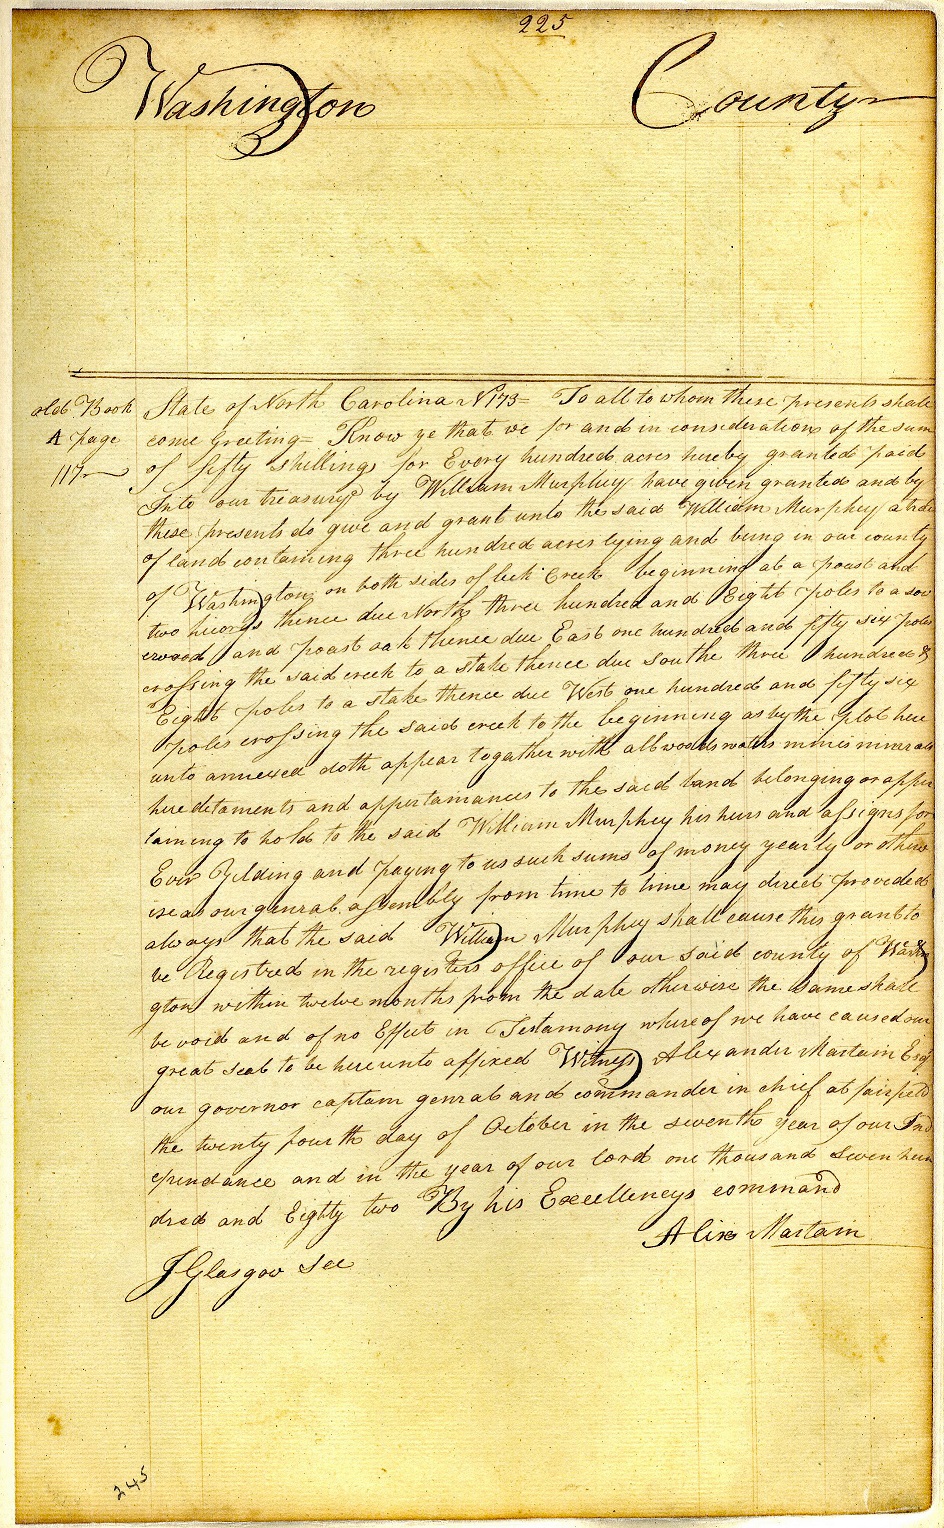 225
Washington County
old Book
A page
117
State of North Carolina No 173 = To all to whom these presents shall
come Greeting = Know ye that we for and in consideration of the sum
of fifty shillings for Every hundred acres hereby granted paid
Into our treasury by William Murphey have given granted and by
these presents do give and grant unto the said William Murphey a track
of land containing three hundred acres lying and being in our county
of Washington on both sides of lick Creek beginning at a poast and
two hicorys thence due North three hundred and Eight poles to a sow
erwood and poast oak thence due East one hundred and fifty six poles
crossing the said creek to a stake thence due southe three hundred &
Eight poles to a stake thence due West one hundred and fifty six
poles crossing the said creek to the beginning as by the plot here
unto annexed doth appear together with all woods waters mines minerals
heredetaments and appertainances to the said land belonging or apper
taining to hold to the said William Murphey his heirs and assigns for
Ever Yelding and paying to us such sums of money yearly or otherw
ise as our genral assembly from time to time may direct provided
always that the said William Murphey shall cause this grant to
be Registred in the registers office of our said county of Washin
gton within twelve months from the date otherwise the same shall
be void and of no Effect in Testamony whereof we have caused our
great seal to be hereunto affixed Witness Alexander Martain Esqr
our governor captain genral and commander in chief at fairfield
the twenty fourth day of October in the seventh year of our Ind
ependance and in the year of our lord one thousand Seven hun
dred and Eighty two By his Excellencys command
Alex Martain
J Glasgow Sec
245